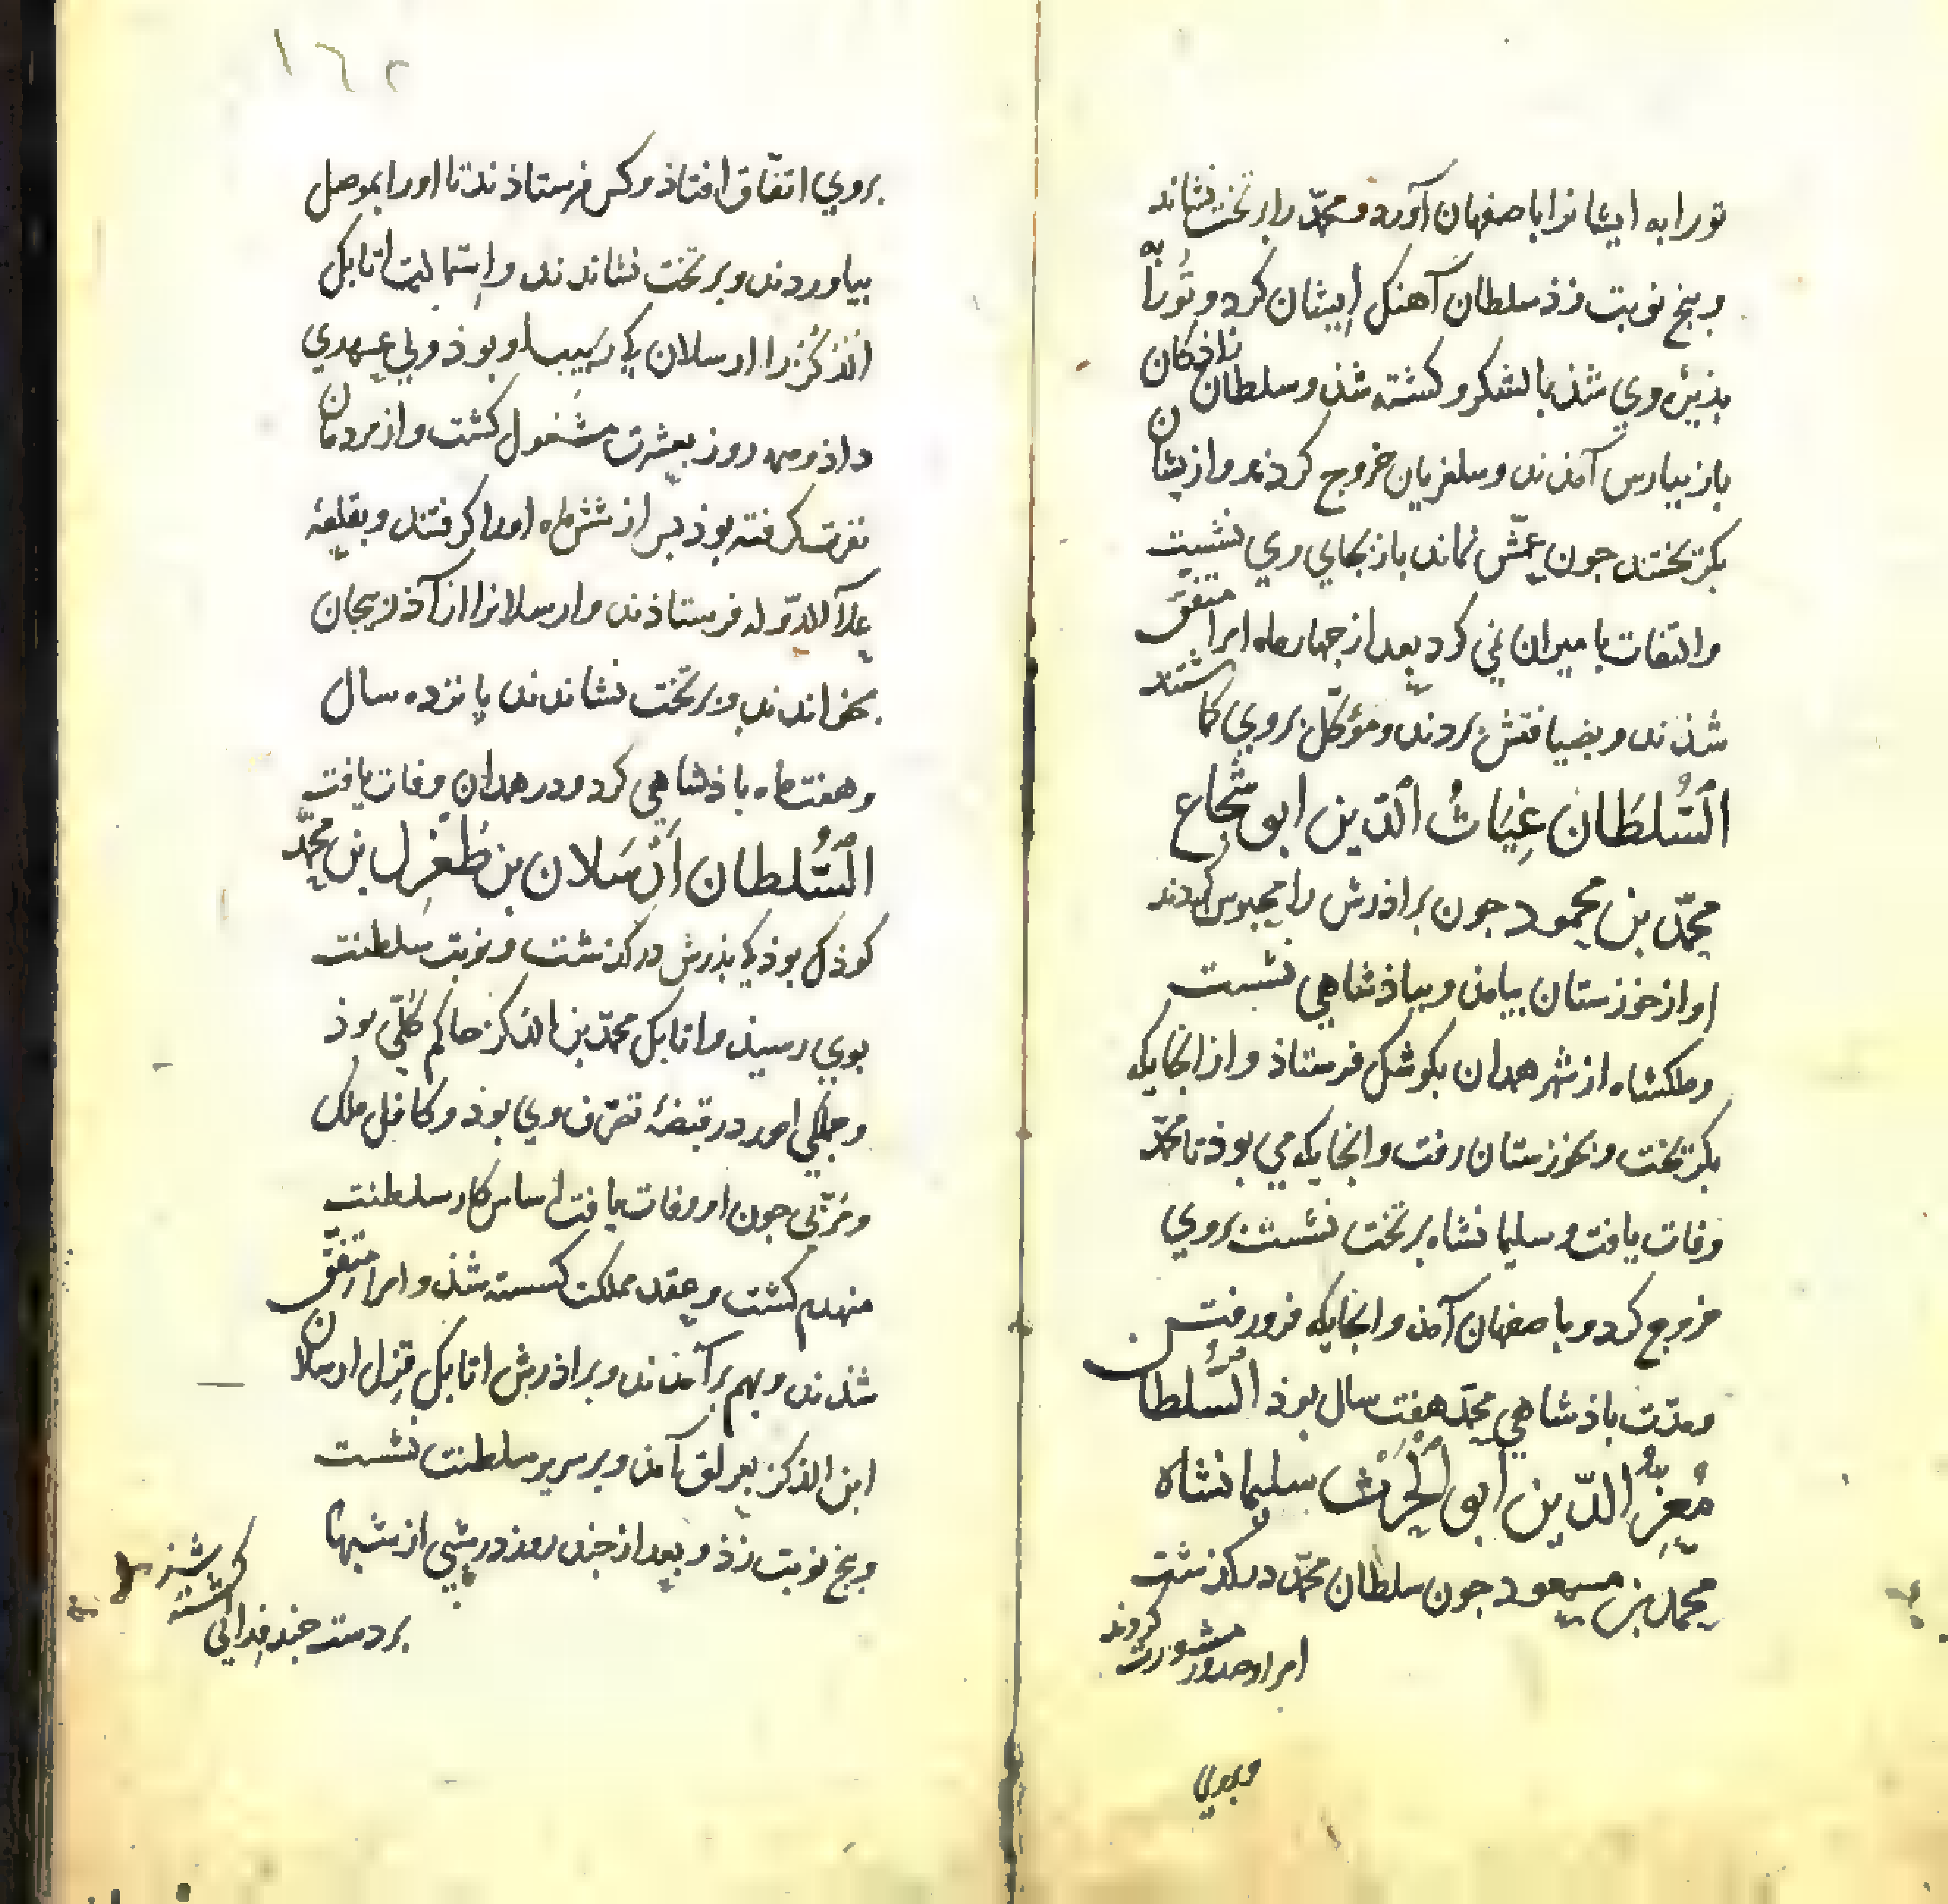 تورابه ایشانرا باصفهان آورد و محمّد را بر تخت نشاند
وبنج نوبت زذ سلطان آهنک ایشان کرد و تُورابه
بذیره وی شذ بالشکر وکشته شذ و سلطان ناخکان
باز ببارس آمذند و سلغریان خروج کردند وازیشان
بکریختند جون عمّش نماند باز بجای وی نشست
والتفات بامیران نمی کرد بعد از جهار ماه امرا متفق
شذند و بضیافتش بردند و مؤکّل بروی کماشتند
اَلسُّلطَان غِیَاثُ اَلدّین ابو شُجاع
محمّد بن محمود جون براذرش را محبوس کردند
او از خوزستان بیامذ و بباذشاهی نشست
وملکشاه از شهر همدان بکوشک فرستاذ و از انجایکه
بکریخت و بخوزستان رفت وانجایکه می بوذ تا محمّد
وفات یافت و سلیمانشاه بر تخت نشست بروی
خروج کرد و باصفهان آمذ وانجایکه فرو رفت
ومدّت باذشاهی محمّد هفت سال بوذ اَلسُّلطان
مُعِزُّ الدّین ابو اَلحَرْث سلیمانشاه
محمد بن مسعود جون سلطان محمّد درکذشت
امرا وصدور مشورت کردند
وبروی
١٦٢
بروی اتفّاق افتاذ و کس فرستاذند تا اورا بموصل
بیاوردند و بر تخت نشاندند و استمالت اتابک
الذکز را ارسلان کی ربیب او بوذ ولی عهدی
داذ و همه روز بعشرت مشغول کشت و از مردمان
نفرت کرفته بوذ بس از شش ماه اورا کرفتند و بقلعهٔ
علآ الدّوله فرستاذند وارسلانرا از آذربیجان
بخواندند و بر تخت نشاندند بانزده سال
و هفت ماه باذشاهی کرد و در همدان وفات یافت
اَلسُّلطان اَرْسَلان بن طُغرِل بن محمّد
کوذک بوذ کی بذرش درکذشت و نوبت سلطنت
بوی رسید و اتابک محمّد بن الذکز حاکم کُلّی بوذ
وجملکی امور در قبضهٔ تصرّف وی بوذ و کافل ملک
ومُرَبّی جون او وفات یافت اساس کار سلطنت
منهدم کشت و عقد مملکت کسسته شذ وامرا متفّق
شذند و بهم برآمذند و براذرش اتابک قزل ارسلان
ابن الذکز بعراق آمذ و بر سریر سلطنت نشست
وبنج نوبت زذ و بعد از جند روز در شبی از شبها
بر دست جند فدائی کشته